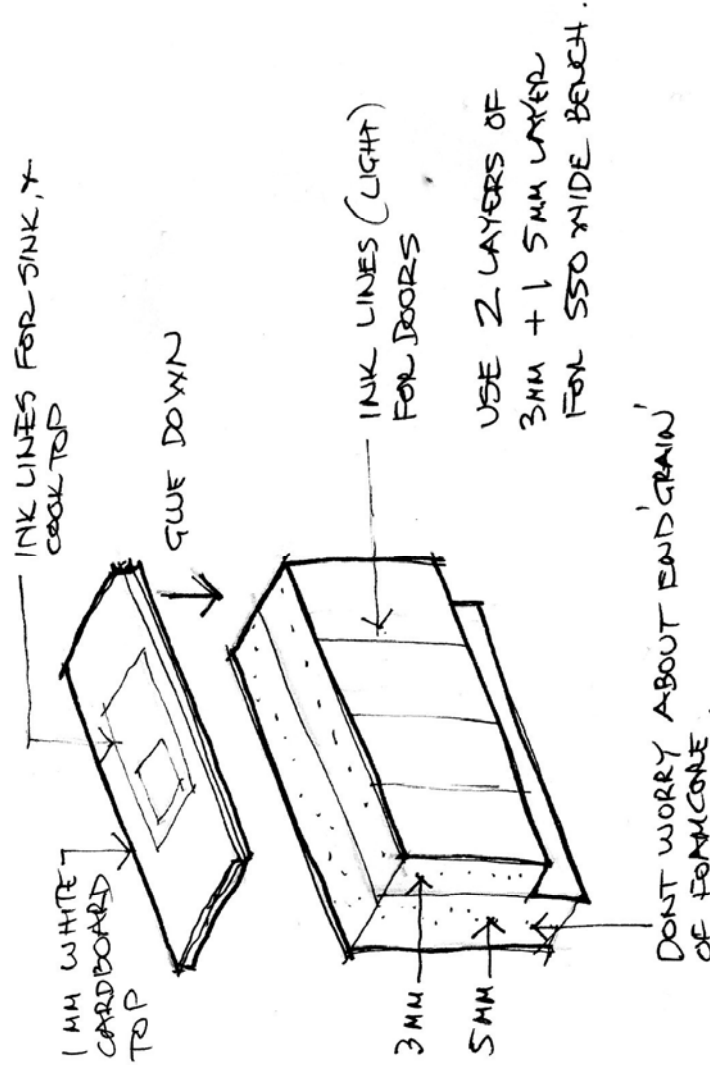 INK LINES FOR SINK, +
COOK TOP
1 MM WHITE
CARDBOARD
TOP
GLUE DOWN
INK LINES (LIGHT)
FOR DOORS
USE 2 LAYERS OF
3MM + 1 5MM LAYER
FOR 550 WIDE BENCH.
3MM
5MM
DONT WORRY ABOUT 'END GRAIN'
OF FOAMCORE.